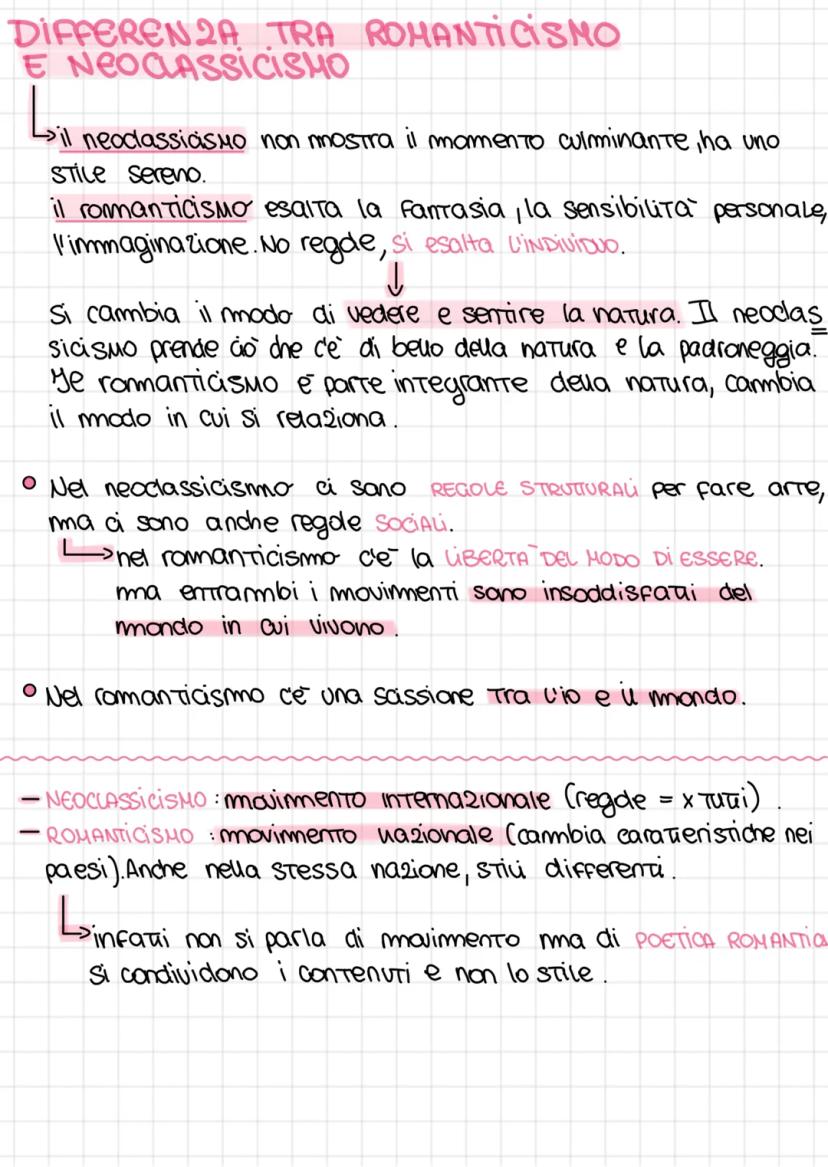 DIFFERENZA TRA ROMANTICISMO
E NEOCLASSICISMO
il neoclassicismo non mostra il momento culminante, ha uno
stile sereno.
il romanticismo esalta la fantasia, la sensibilità personale,
l'immaginazione. No regole, si esalta l'individuo.
Si cambia il modo di vedere e sentire la natura. Il neoclas
sicismo prende ciò che c'è di bello della natura e la padroneggia.
Il romanticismo è parte integrante della natura, cambia
il modo in cui si relaziona.
Nel neoclassicismo ci sono REGOLE STRUTTURALI per fare arte,
ma ci sono anche regole SOCIALI.
nel romanticismo c'è la LIBERTÀ DEL MODO DI ESSERE.
ma entrambi i movimenti sono insoddisfatti del
mondo in cui vivono.
Nel romanticismo c'è una scissione tra l'io e il mondo.
- NEOCLASSICISMO: movimento internazionale (regole = x tutti).
- ROMANTICISMO: movimento nazionale (cambia caratteristiche nei
paesi). Anche nella stessa nazione, stili differenti.
infatti non si parla di movimento ma di POETICA ROMANTICA
Si condividono i contenuti e non lo stile.